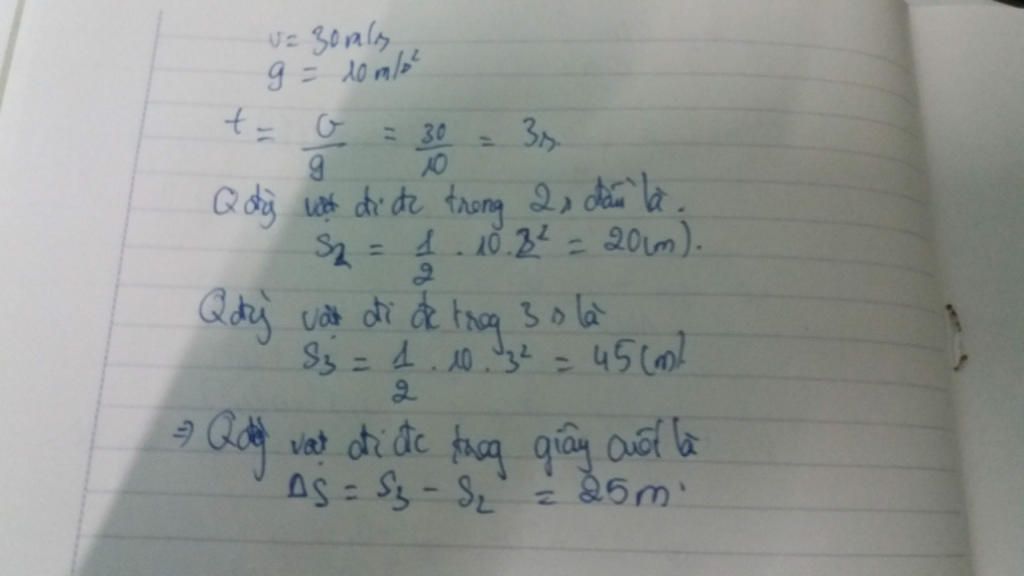 v = 30 m/s
g = 10 m/s²
t = v/g = 30/10 = 3s
Qđg vật đi đc trong 2s đầu là.
S₂ = 1/2 . 10 . 2² = 20(m).
Qđg vật đi đc trog 3s là
S₃ = 1/2 . 10 . 3² = 45(m)
⇒ Qđg vật đi đc trog giây cuối là
ΔS = S₃ - S₂ = 25m.